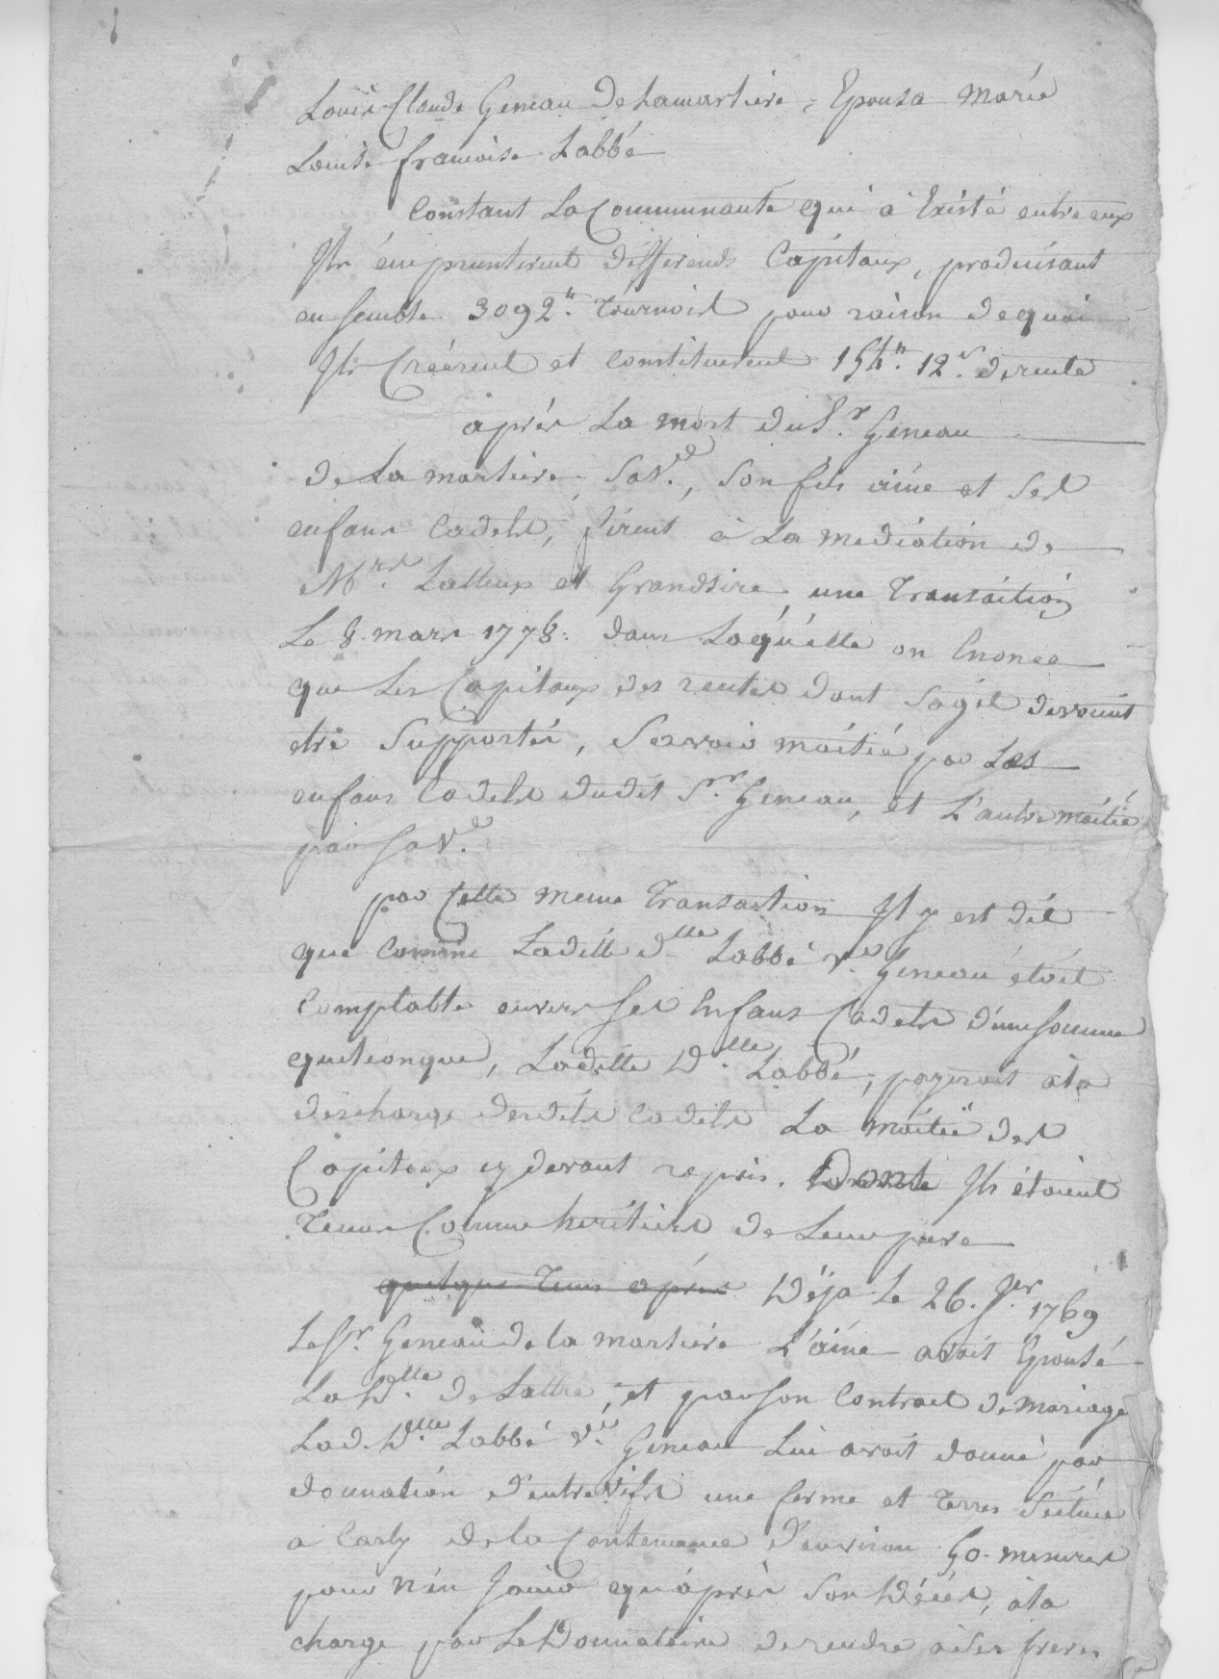 Louis Claude Geneau De Lamartiere, Epousa Marie
Louise francoise Labbé
Constant La Communauté qui à Existé entre eux
Ils émpruntirent differends Capitaux, produisant
ensemble 3092ᵗᵗ Tournois pour raison de quoi
Ils Créérent et Constituerent 154ᵗᵗ. 12ˢ. de rente
àprès La mort du S.ʳ Geneau
de La martiere, sa V.ᵉ, son fils ainé et ses
enfans Cadets, firent à La mediation de
M.ʳˢ Latteux et Grandsire, une Transaition
Le 8. mars 1778. dans Laquélle on Enonce
que Les Capitaux des rentes dont s'agit devoient
etre supportés, Scavoir moitié par Les
enfans Cadets dudit S.ʳ Geneau, et L'autre moitié
par sa V.ᵉ
par Cette meme Transaction Il y est dit
que Comme Laditte d.ˡˡᵉ Labbé V.ᵉ Geneau étoit
Comptable envers ses Enfans Cadets d'une somme
quelconque, Laditte D.ˡˡᵉ Labbé, payeroit à la
décharge desdits Cadets La moitié des
Capitaux cy devant repris. Dont Ils étoient
Tenus Comme heritiers de Leur pere
quelque Tems après Déja Le 26. 1769
Le S.ʳ Geneau de la martiere L'ainé avoit Epousé
La D.ˡˡᵉ De Lattre, et par son Contract de mariage
Lad. D.ˡˡᵉ Labbé V.ᵉ Geneau Lui avoit donné par
donnation d'entre vifs une ferme et Terres Scitues
a Carly de la Contenance d'environ 60. mesures
pour n'en Jouir qu'àprès son Décés, à la
charge par Le Donnataire de rendre à ses freres